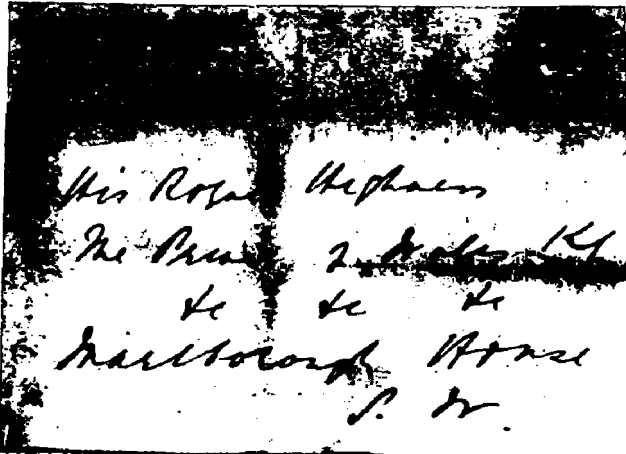 His Royal Highness
The Prince of Wales KG
&c &c &c
Marlborough House
S. W.